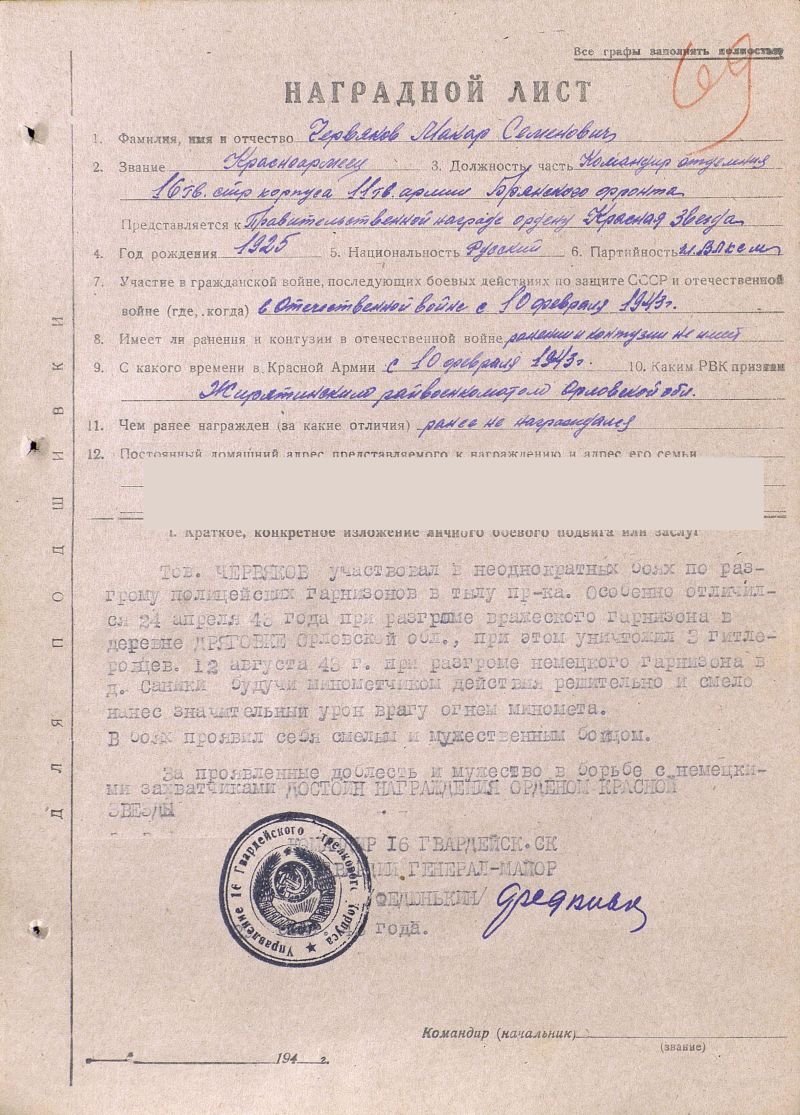 Все графы заполнять полностью
69
НАГРАДНОЙ ЛИСТ
1. Фамилия, имя и отчество Червяков Макар Семенович
2. Звание Красноармеец 3. Должность, часть Командир отделения
16 гв. стр корпуса 11 гв. армии Брянского фронта
Представляется к Правительственной награде ордену Красная Звезда
4. Год рождения 1925 5. Национальность Русский 6. Партийность чл. ВЛКСМ
7. Участие в гражданской войне, последующих боевых действиях по защите СССР и отечественной
войне (где, когда) в Отечественной войне с 10 февраля 1943 г.
8. Имеет ли ранения и контузии в отечественной войне ранении и контузии не имеет
9. С какого времени в Красной Армии с 10 февраля 1943 г. 10. Каким РВК призван
Жирятинским райвоенкоматом Орловской обл.
11. Чем ранее награжден (за какие отличия) ранее не награждался
12. Постоянный домашний адрес представляемого к награждению и адрес его семьи
I. Краткое, конкретное изложение личного боевого подвига или заслуг
Тов. ЧЕРВЯКОВ участвовал в неоднократных боях по раз-
грому полицейских гарнизонов в тылу пр-ка. Особенно отличил-
ся 24 апреля 43 года при разгроме вражеского гарнизона в
деревне ДРЯГОВКЕ Орловской обл., при этом уничтожил 3 гитле-
ровцев. 12 августа 43 г. при разгроме немецкого гарнизона в
д. Саники будучи минометчиком действия решительно и смело
нанес значительный урон врагу огнем миномета.
В боях проявил себя смелым и мужественным бойцом.
За проявленные доблесть и мужество в борьбе с немецки-
ми захватчиками ДОСТОИН НАГРАЖДЕНИЯ ОРДЕНОМ КРАСНОЙ
ЗВЕЗДЫ
КОМАНДИР 16 ГВАРДЕЙСК.СК
ГВАРДИИ ГЕНЕРАЛ-МАЙОР
ФЕДЮНЬКИН/
года.
Управление 16 Гвардейского Стрелкового Корпуса
Командир (начальник)
(звание)
194 г.
ДЛЯ ПОДШИВКИ